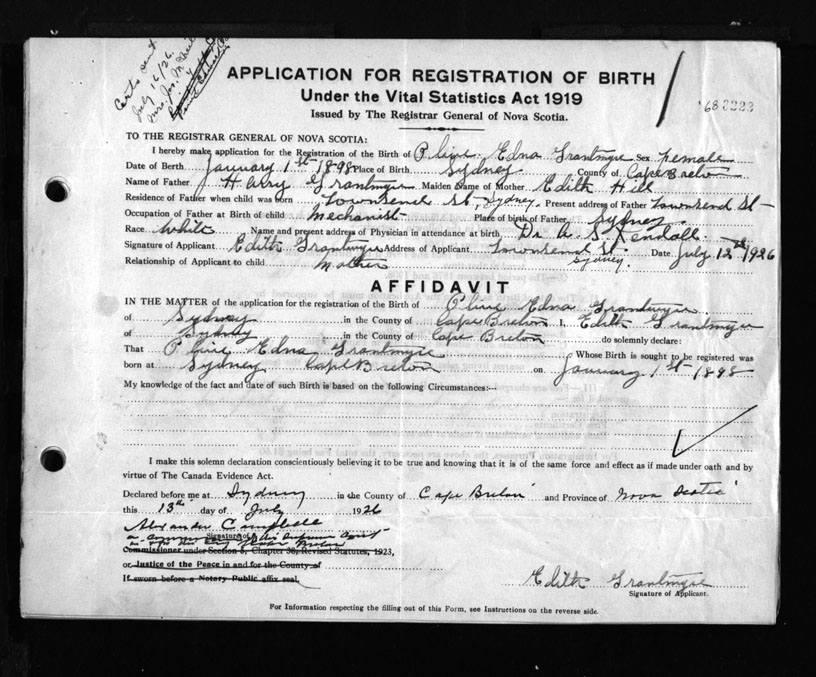 Certs sent
July 16/26.
Mrs. Jos. M
APPLICATION FOR REGISTRATION OF BIRTH
Under the Vital Statistics Act 1919
Issued by The Registrar General of Nova Scotia.
TO THE REGISTRAR GENERAL OF NOVA SCOTIA:
I hereby make application for the Registration of the Birth of Edna Grantmyre Sex female
Date of Birth January 1st 1898 Place of Birth Sydney County of Cape Breton
Name of Father Harry Grantmyre Maiden Name of Mother Edith Hill
Residence of Father when child was born Townsend St, Sydney. Present address of Father Townsend St
Occupation of Father at Birth of child Mechanist Place of birth of Father Sydney
Race White Name and present address of Physician in attendance at birth Dr. A. S. Kendall.
Signature of Applicant Edith Grantmyre Address of Applicant Townsend St. Sydney Date July 12th 1926
Relationship of Applicant to child Mother
AFFIDAVIT
IN THE MATTER of the application for the registration of the Birth of Edna Grantmyre
of Sydney in the County of Cape Breton I, Edith Grantmyre
of Sydney in the County of Cape Breton do solemnly declare:
That Edna Grantmyre Whose Birth is sought to be registered was
born at Sydney Cape Breton on January 1st 1898
My knowledge of the fact and date of such Birth is based on the following Circumstances:--
I make this solemn declaration conscientiously believing it to be true and knowing that it is of the same force and effect as if made under oath and by
virtue of The Canada Evidence Act.
Declared before me at Sydney in the County of Cape Breton and Province of Nova Scotia
this 13th day of July 1926
Alexander Campbell
Signature of
Commissioner under Section 5, Chapter 38, Revised Statutes, 1923,
or Justice of the Peace in and for the County of
If sworn before a Notary Public affix seal.
Edith Grantmyre
Signature of Applicant.
For Information respecting the filling out of this Form, see Instructions on the reverse side.